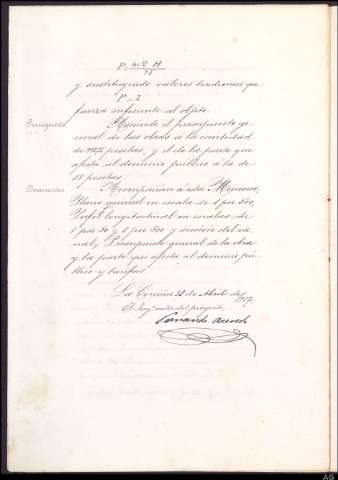 y sustituyendo valores tendremos que
P = 2
fuerza suficiente al objeto.
Presupuesto. Asciende el presupuesto ge-
neral de las obras á la cantidad
de pesetas, y el de la parte que
afecta al dominio público á la de
18 pesetas.
Documentos. Acompañan á esta Memoria,
Plano general en escala de 1 por 500,
Perfil longitudinal en escalas de
1 por 50 y 1 por 500 y sección del ca-
nal, Presupuesto general de la obra
y la parte que afecta al dominio pú-
blico y tarifas.
La Coruña 28 de Abril de 1917.
El Ingº autor del proyecto,
Fernando
AG